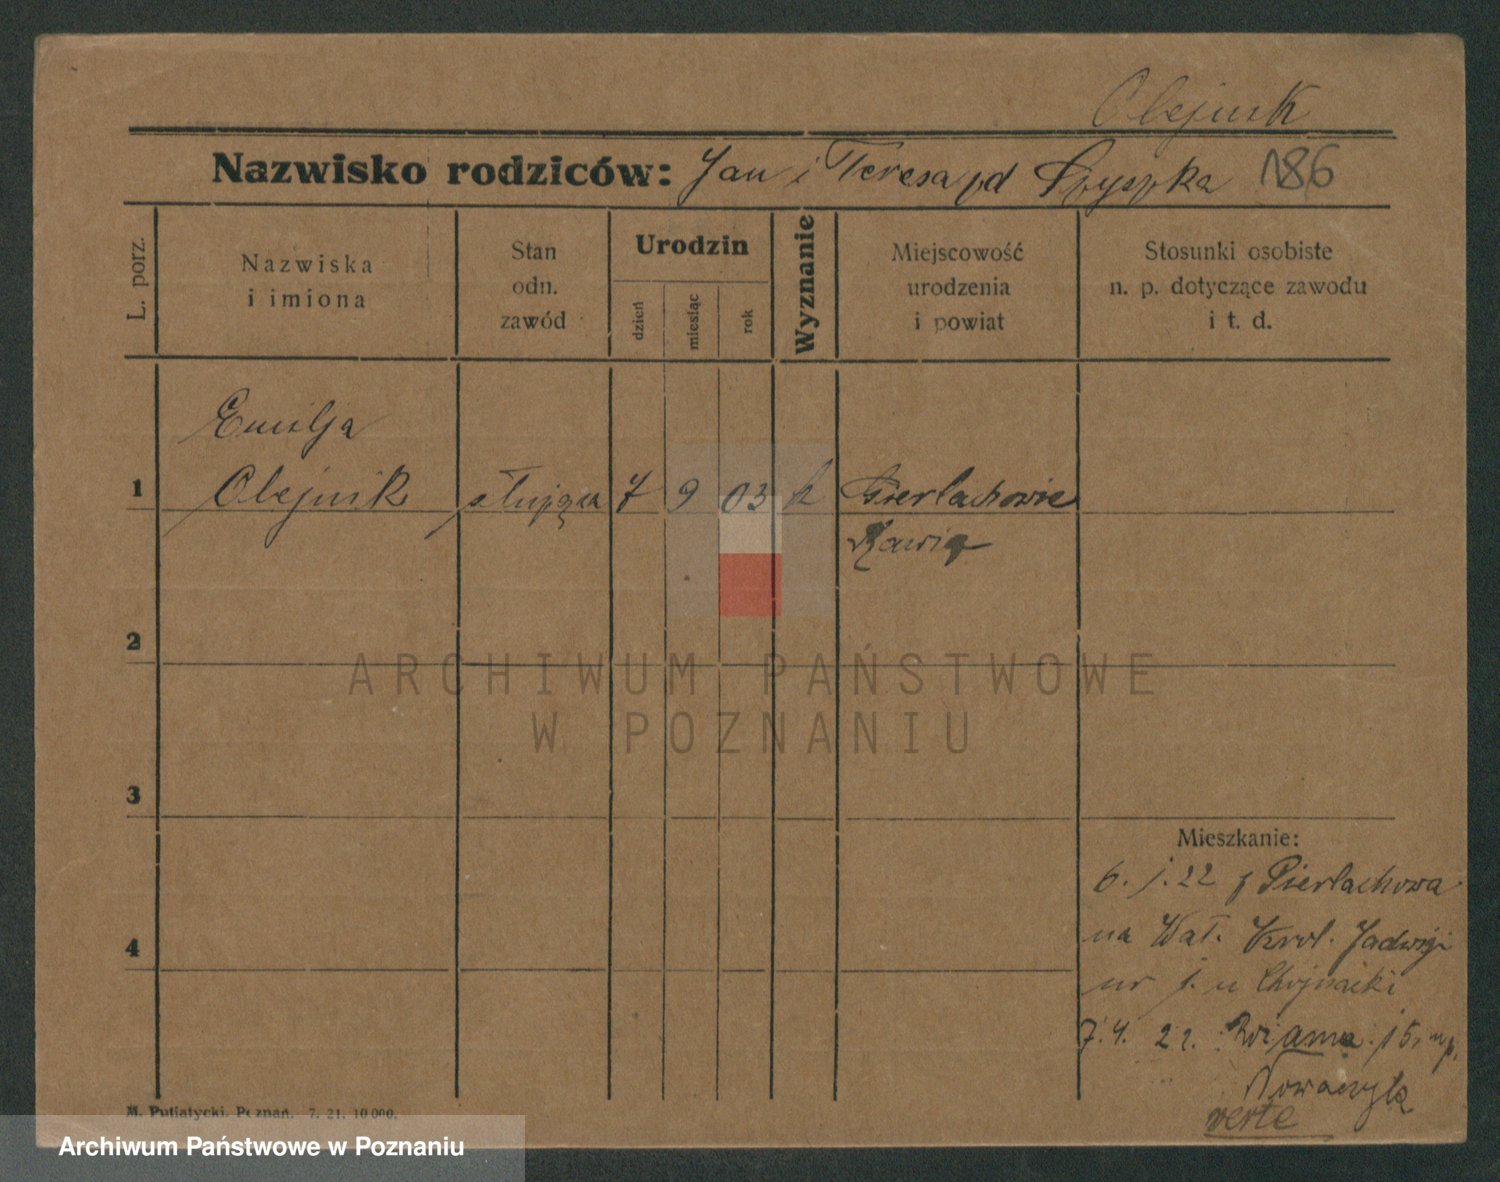 Olejnik
Nazwisko rodziców: Jan i Teresa pd 186
L. porz.
Nazwiska
i imiona
Stan
odn.
zawód
Urodzin
dzień
miesiąc
rok
Wyznanie
Miejscowość
urodzenia
i powiat
Stosunki osobiste
n. p. dotyczące zawodu
i t. d.
Emilja
1 Olejnik służąca 7 9 03 k Gierlachowie
2
3
4
Mieszkanie:
6. 1. 22 z
na Wał. Król. Jadwigi
nr 1. u Chojnacki
7. 4. 22.
Nowaczyk
verte
M. Putiatycki, Poznań. 7. 21. 10 000.
ARCHIWUM PAŃSTWOWE
W POZNANIU
Archiwum Państwowe w Poznaniu